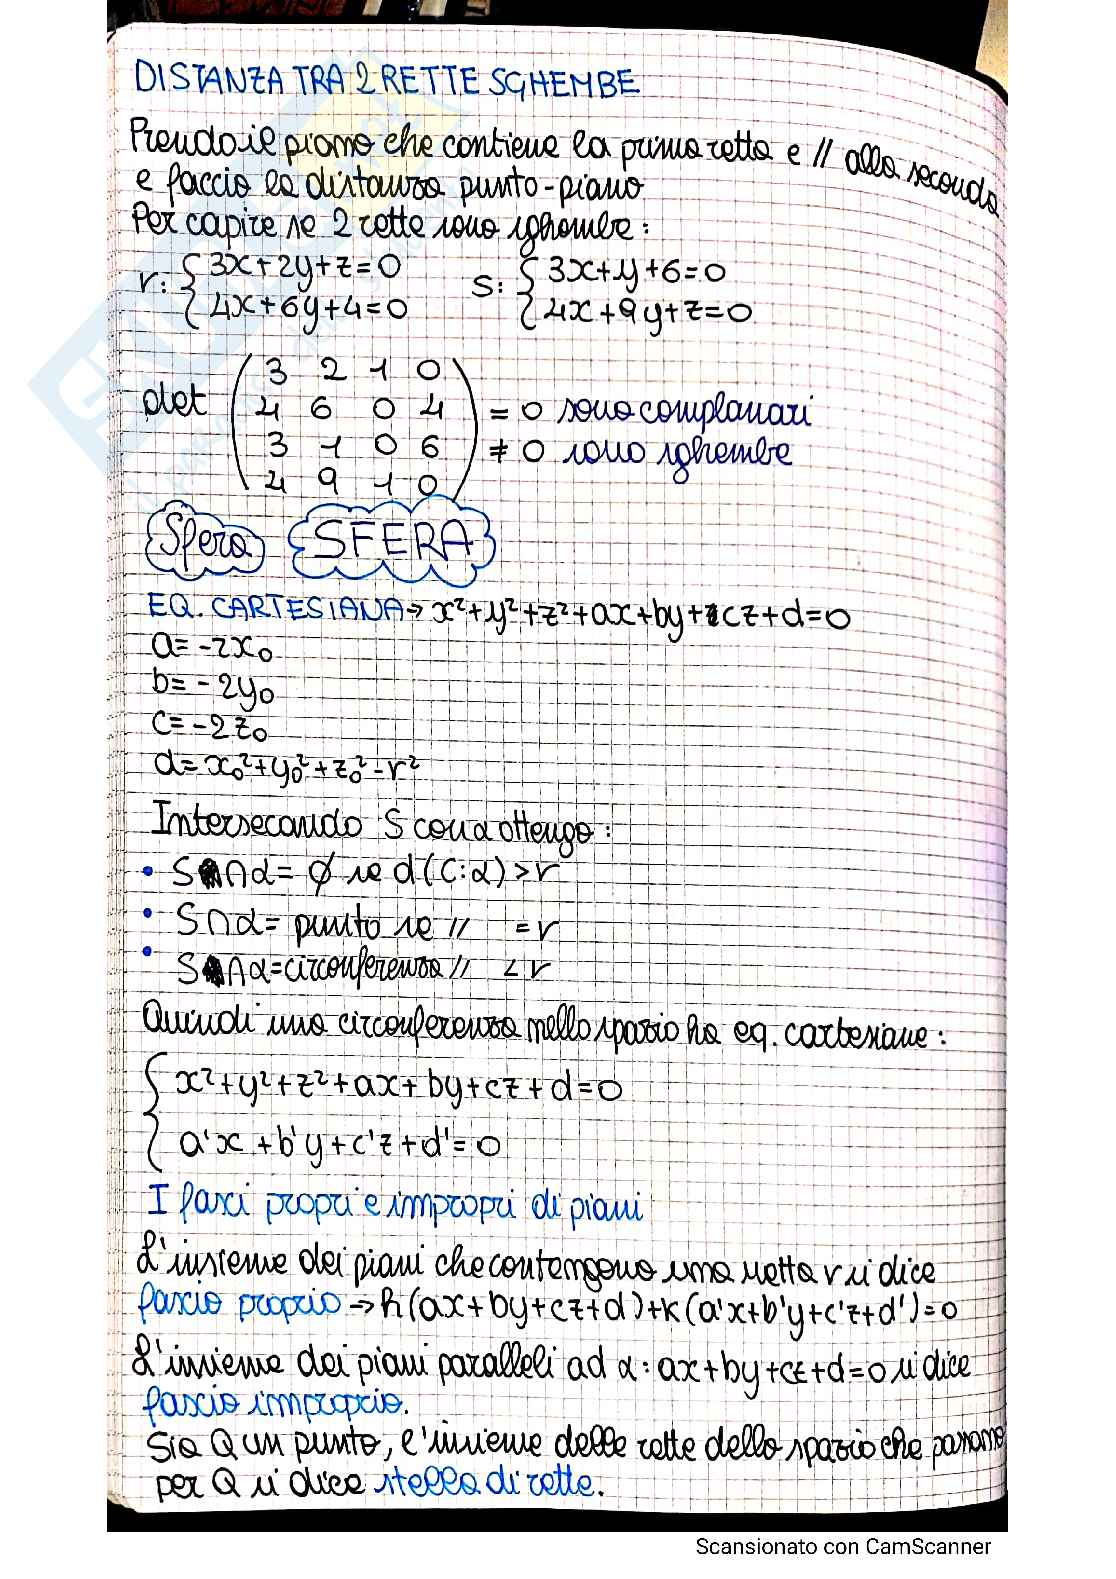 DISTANZA TRA 2 RETTE SGHEMBE
Prendo il piano che contiene la prima retta e // alla seconda
e faccio la distanza punto-piano
Per capire se 2 rette sono sghembe:
r: { 3x+2y+z=0 s: { 3x+y+6=0
{ 4x+6y+4=0 { 4x+9y+z=0
det ( 3 2 1 0 )
( 4 6 0 4 ) = 0 sono complanari
( 3 1 0 6 ) ≠ 0 sono sghembe
( 4 9 1 0 )
Sfera SFERA
EQ. CARTESIANA → x²+y²+z²+ax+by+cz+d=0
a=-2x₀
b=-2y₀
c=-2z₀
d=x₀²+y₀²+z₀²-r²
Intersecando S con α ottengo:
• S∩α= ∅ se d(C;α)>r
• S∩α= punto se // =r
• S∩α=circonferenza // <r
Quindi una circonferenza nello spazio ha eq. cartesiane:
{ x²+y²+z²+ax+by+cz+d=0
{ a'x+b'y+c'z+d'=0
I fasci propri e impropri di piani
L'insieme dei piani che contengono una retta r si dice
fascio proprio → h(ax+by+cz+d)+k(a'x+b'y+c'z+d')=0
L'insieme dei piani paralleli ad α: ax+by+cz+d=0 si dice
fascio improprio.
Sia Q un punto, l'insieme delle rette dello spazio che passano
per Q si dice stella di rette.
Scansionato con CamScanner